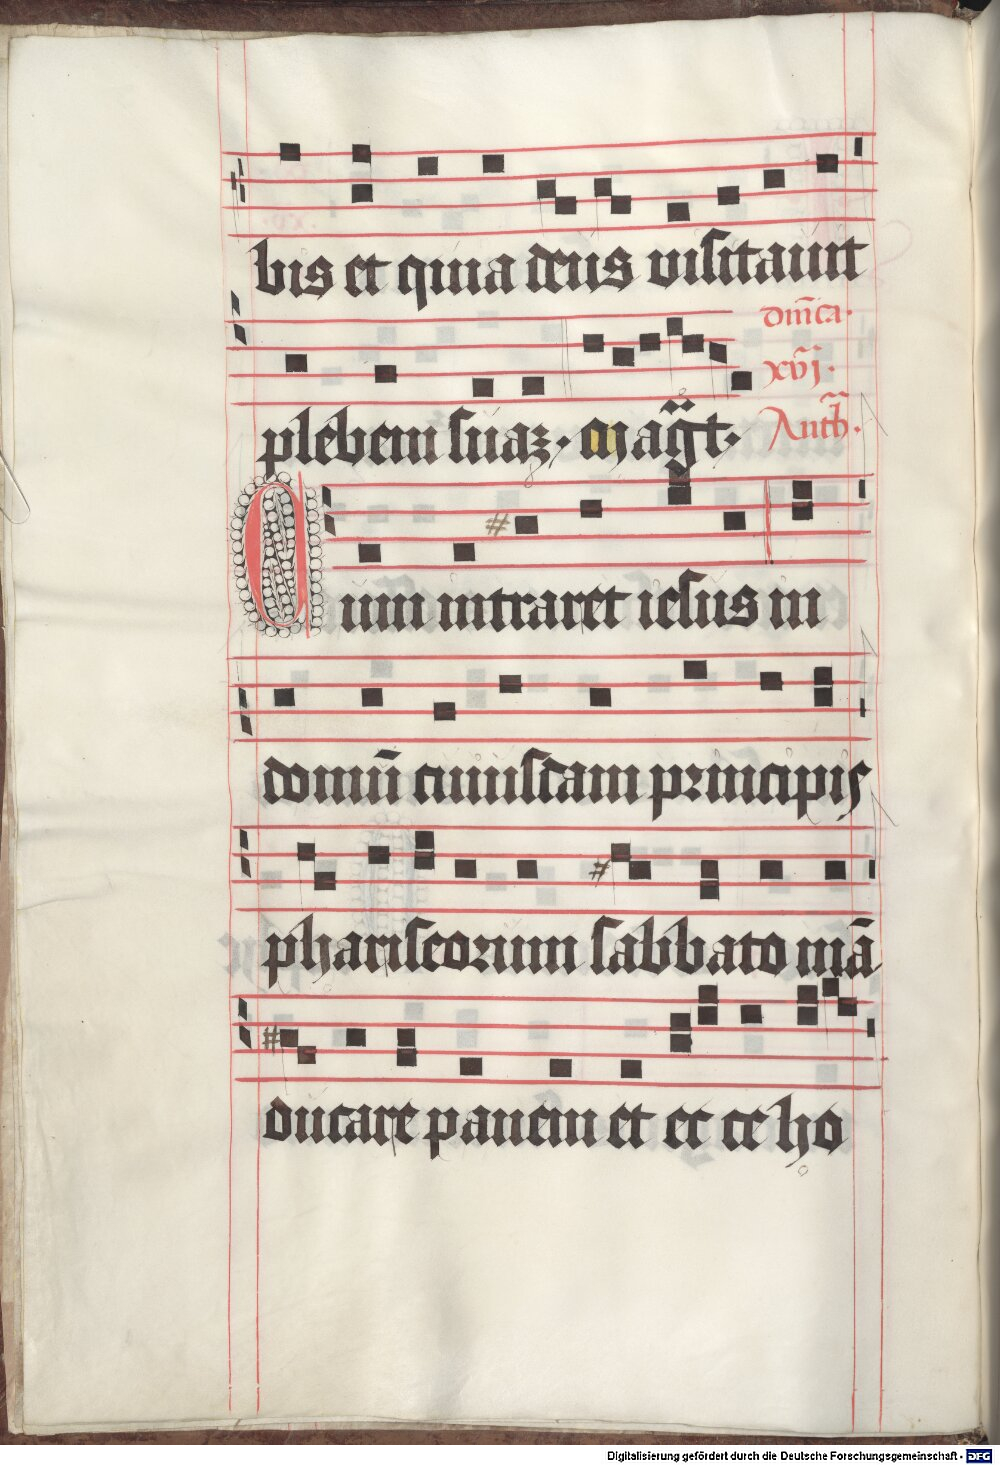 bis et quia deus visitavit
dn̄ica.
xvı̄.
plebem suaz. Mag̃t.
Antħ.
Cum intraret iesus in
domū cuiusdam principis
phariseorum sabbato mā
ducare panem et ec ce ho
Digitalisierung gefördert durch die Deutsche Forschungsgemeinschaft - DFG